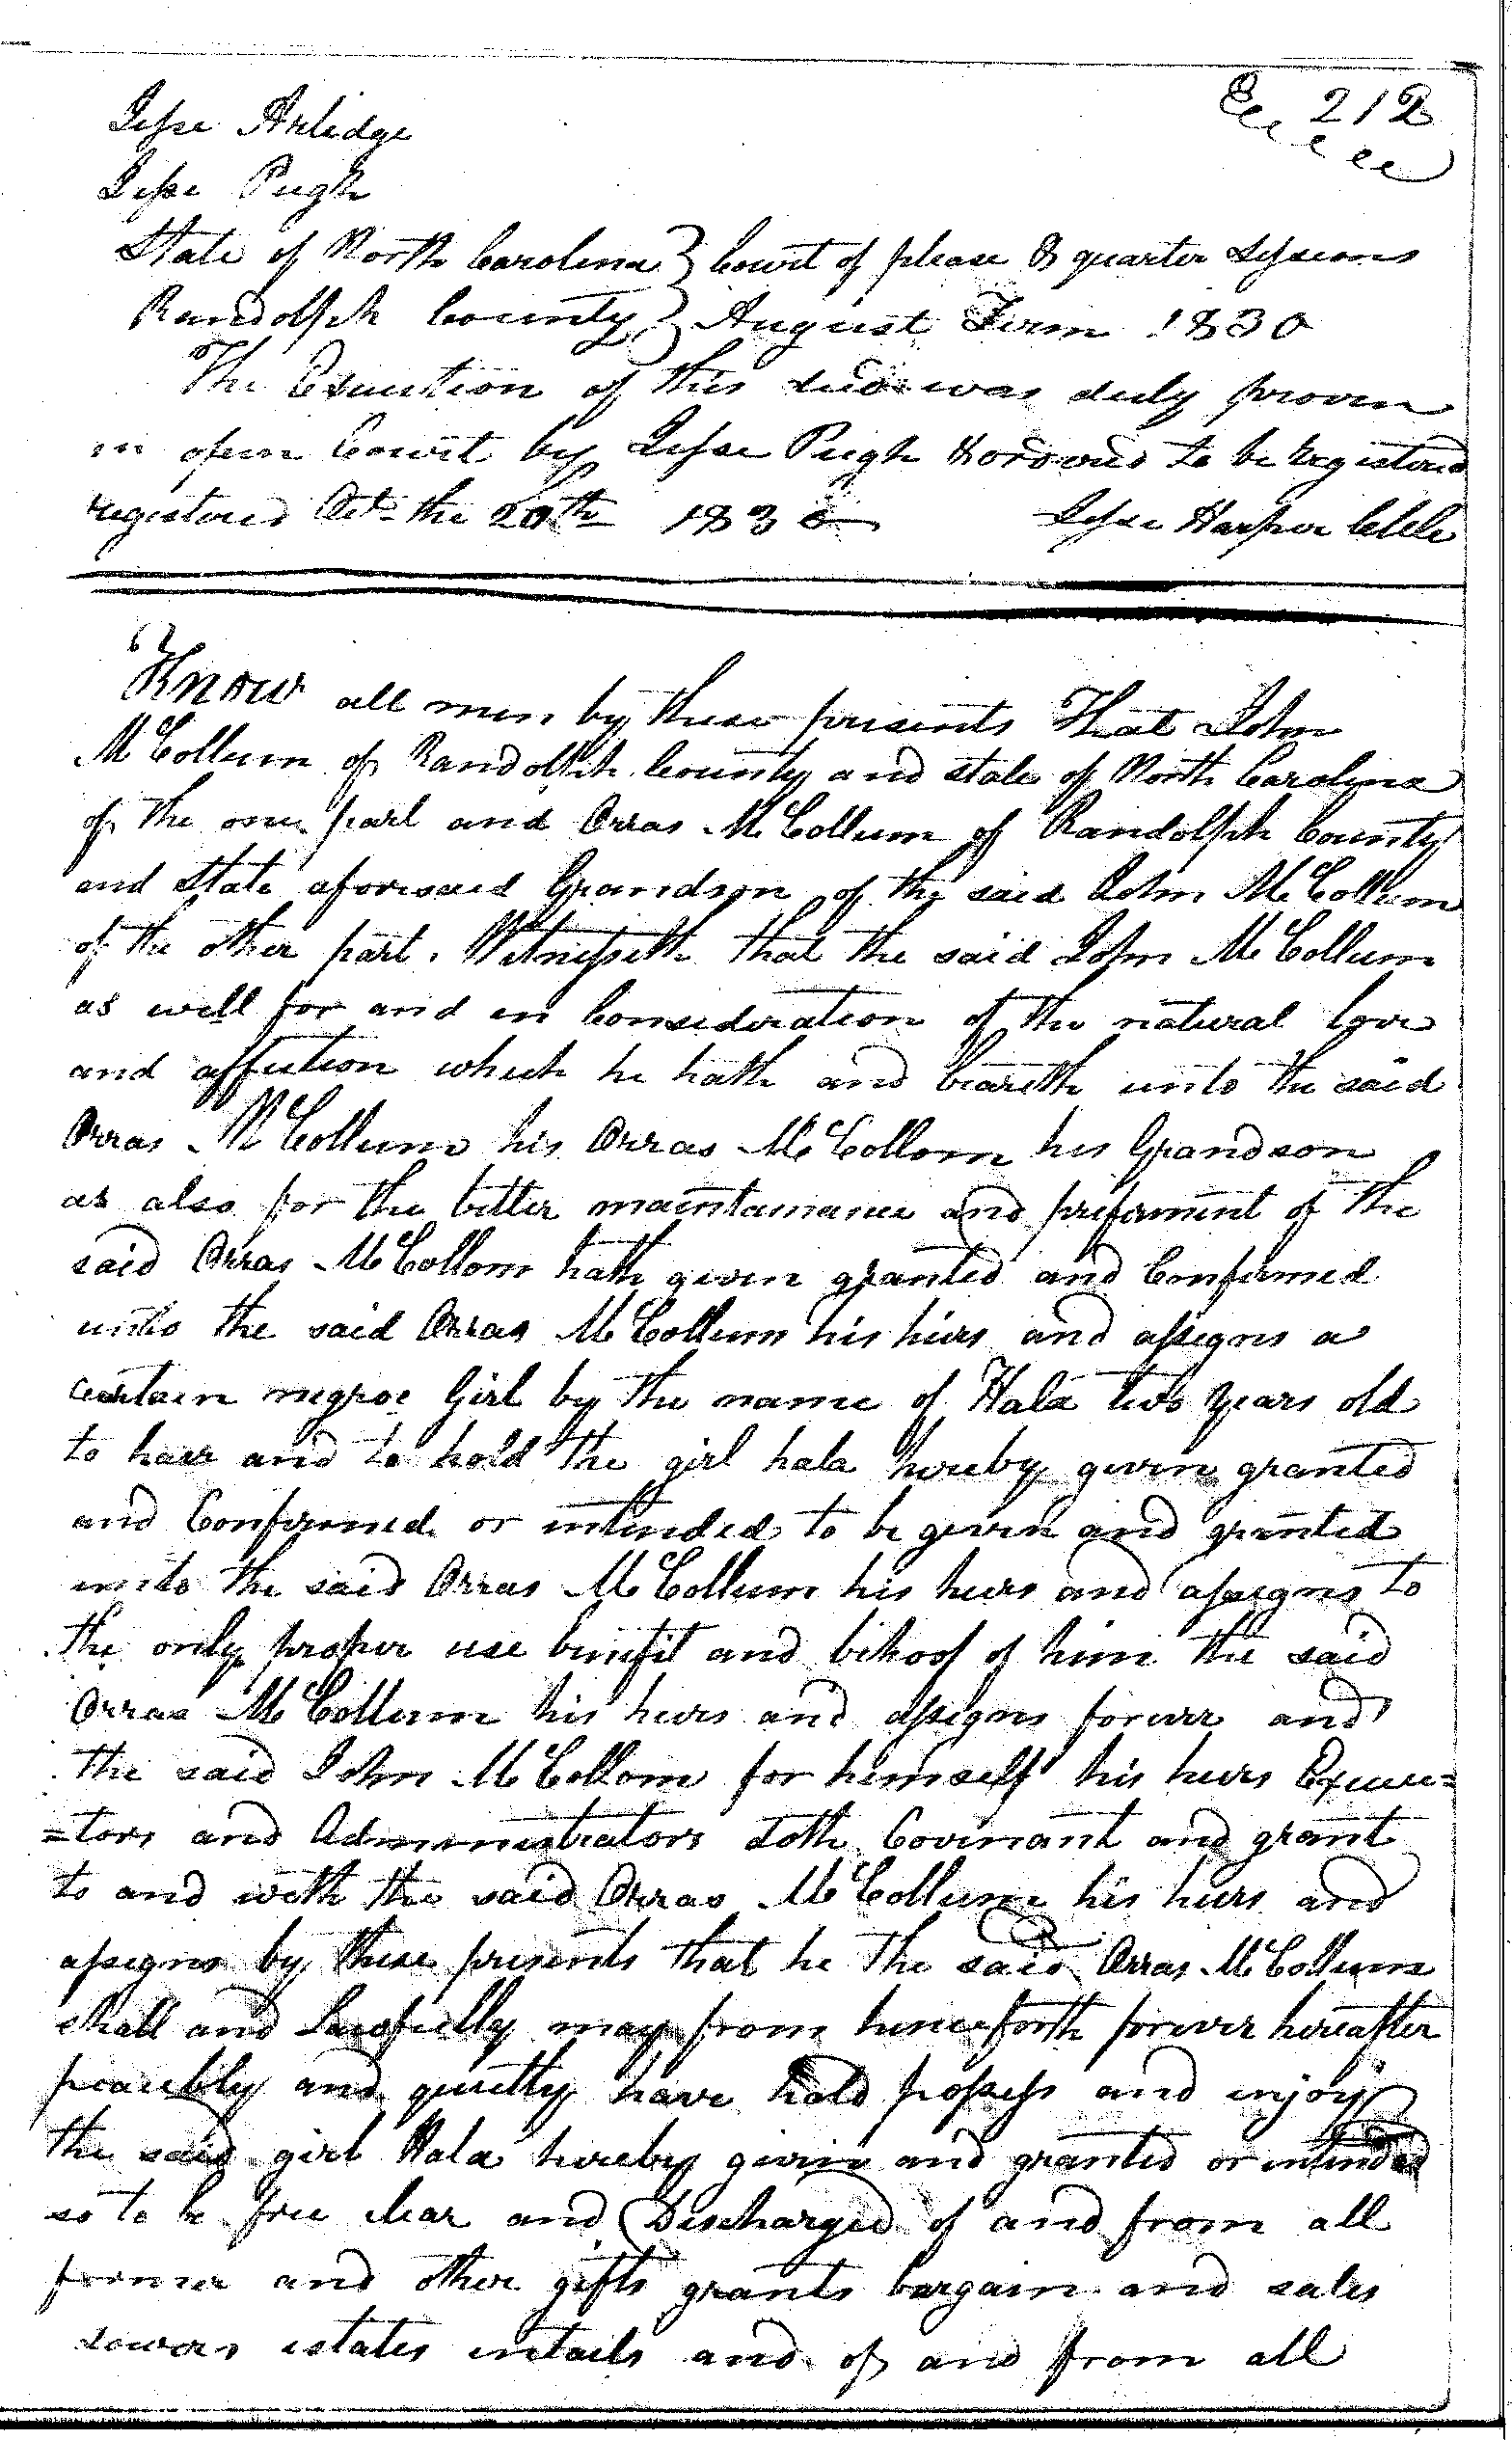 212
Jesse Arledge
Jesse Pugh
State of North Carolina } Court of please & quarter Sessions
Randolph County } August Term 1830
The Execution of this deed was duly proven
in open Court by Jesse Pugh & ordered to be registered
registered Oct the 20th 1830 Jesse Harper Clk
Know all men by these presents That John
McCollum of Randolph County and state of North Carolina
of the one part and Orras McCollum of Randolph County
and State aforesaid Grandson of the said John McCollum
of the other part. Witnesseth that the said John McCollum
as well for and in Consideration of the natural love
and affection which he hath and beareth unto the said
Orras McCollum his Orras McCollom his Grandson
as also for the better maintainance and preferment of the
said Orras McCollom hath given granted and Confirmed
unto the said Orras McCollum his heirs and assigns a
certain negroe Girl by the name of Hala two years old
to have and to hold the girl hala hereby given granted
and Confirmed or intended to be given and granted
unto the said Orras McCollum his heirs and assigns to
the only proper use benefit and behoof of him the said
Orras McCollum his heirs and assigns forever and
the said John McCollom for himself his heirs Execu=
=tors and Administrators doth Covenant and grant
to and with the said Orras McCollum his heirs and
assigns by these presents that he the said Orras McCollum
shall and Lawfully may from henceforth forever hereafter
peaceably and quietly have hold possess and enjoy
the said girl Hala hereby given and granted or intended
so to be free clear and Discharged of and from all
former and other gifts grants bargain and sales
dowers estates entails and of and from all